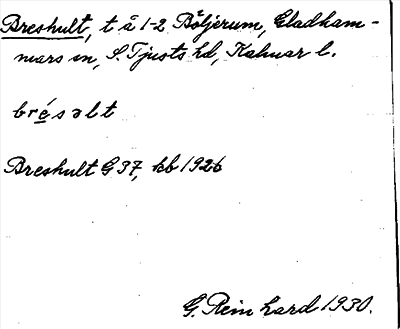 Breshult, t å 1-2 Böljerum, Gladham-
mars sn, S. Tjusts hd, Kalmar l.
brésəlt
Breshult G 37, kb 1926
G. Reinhard 1930.